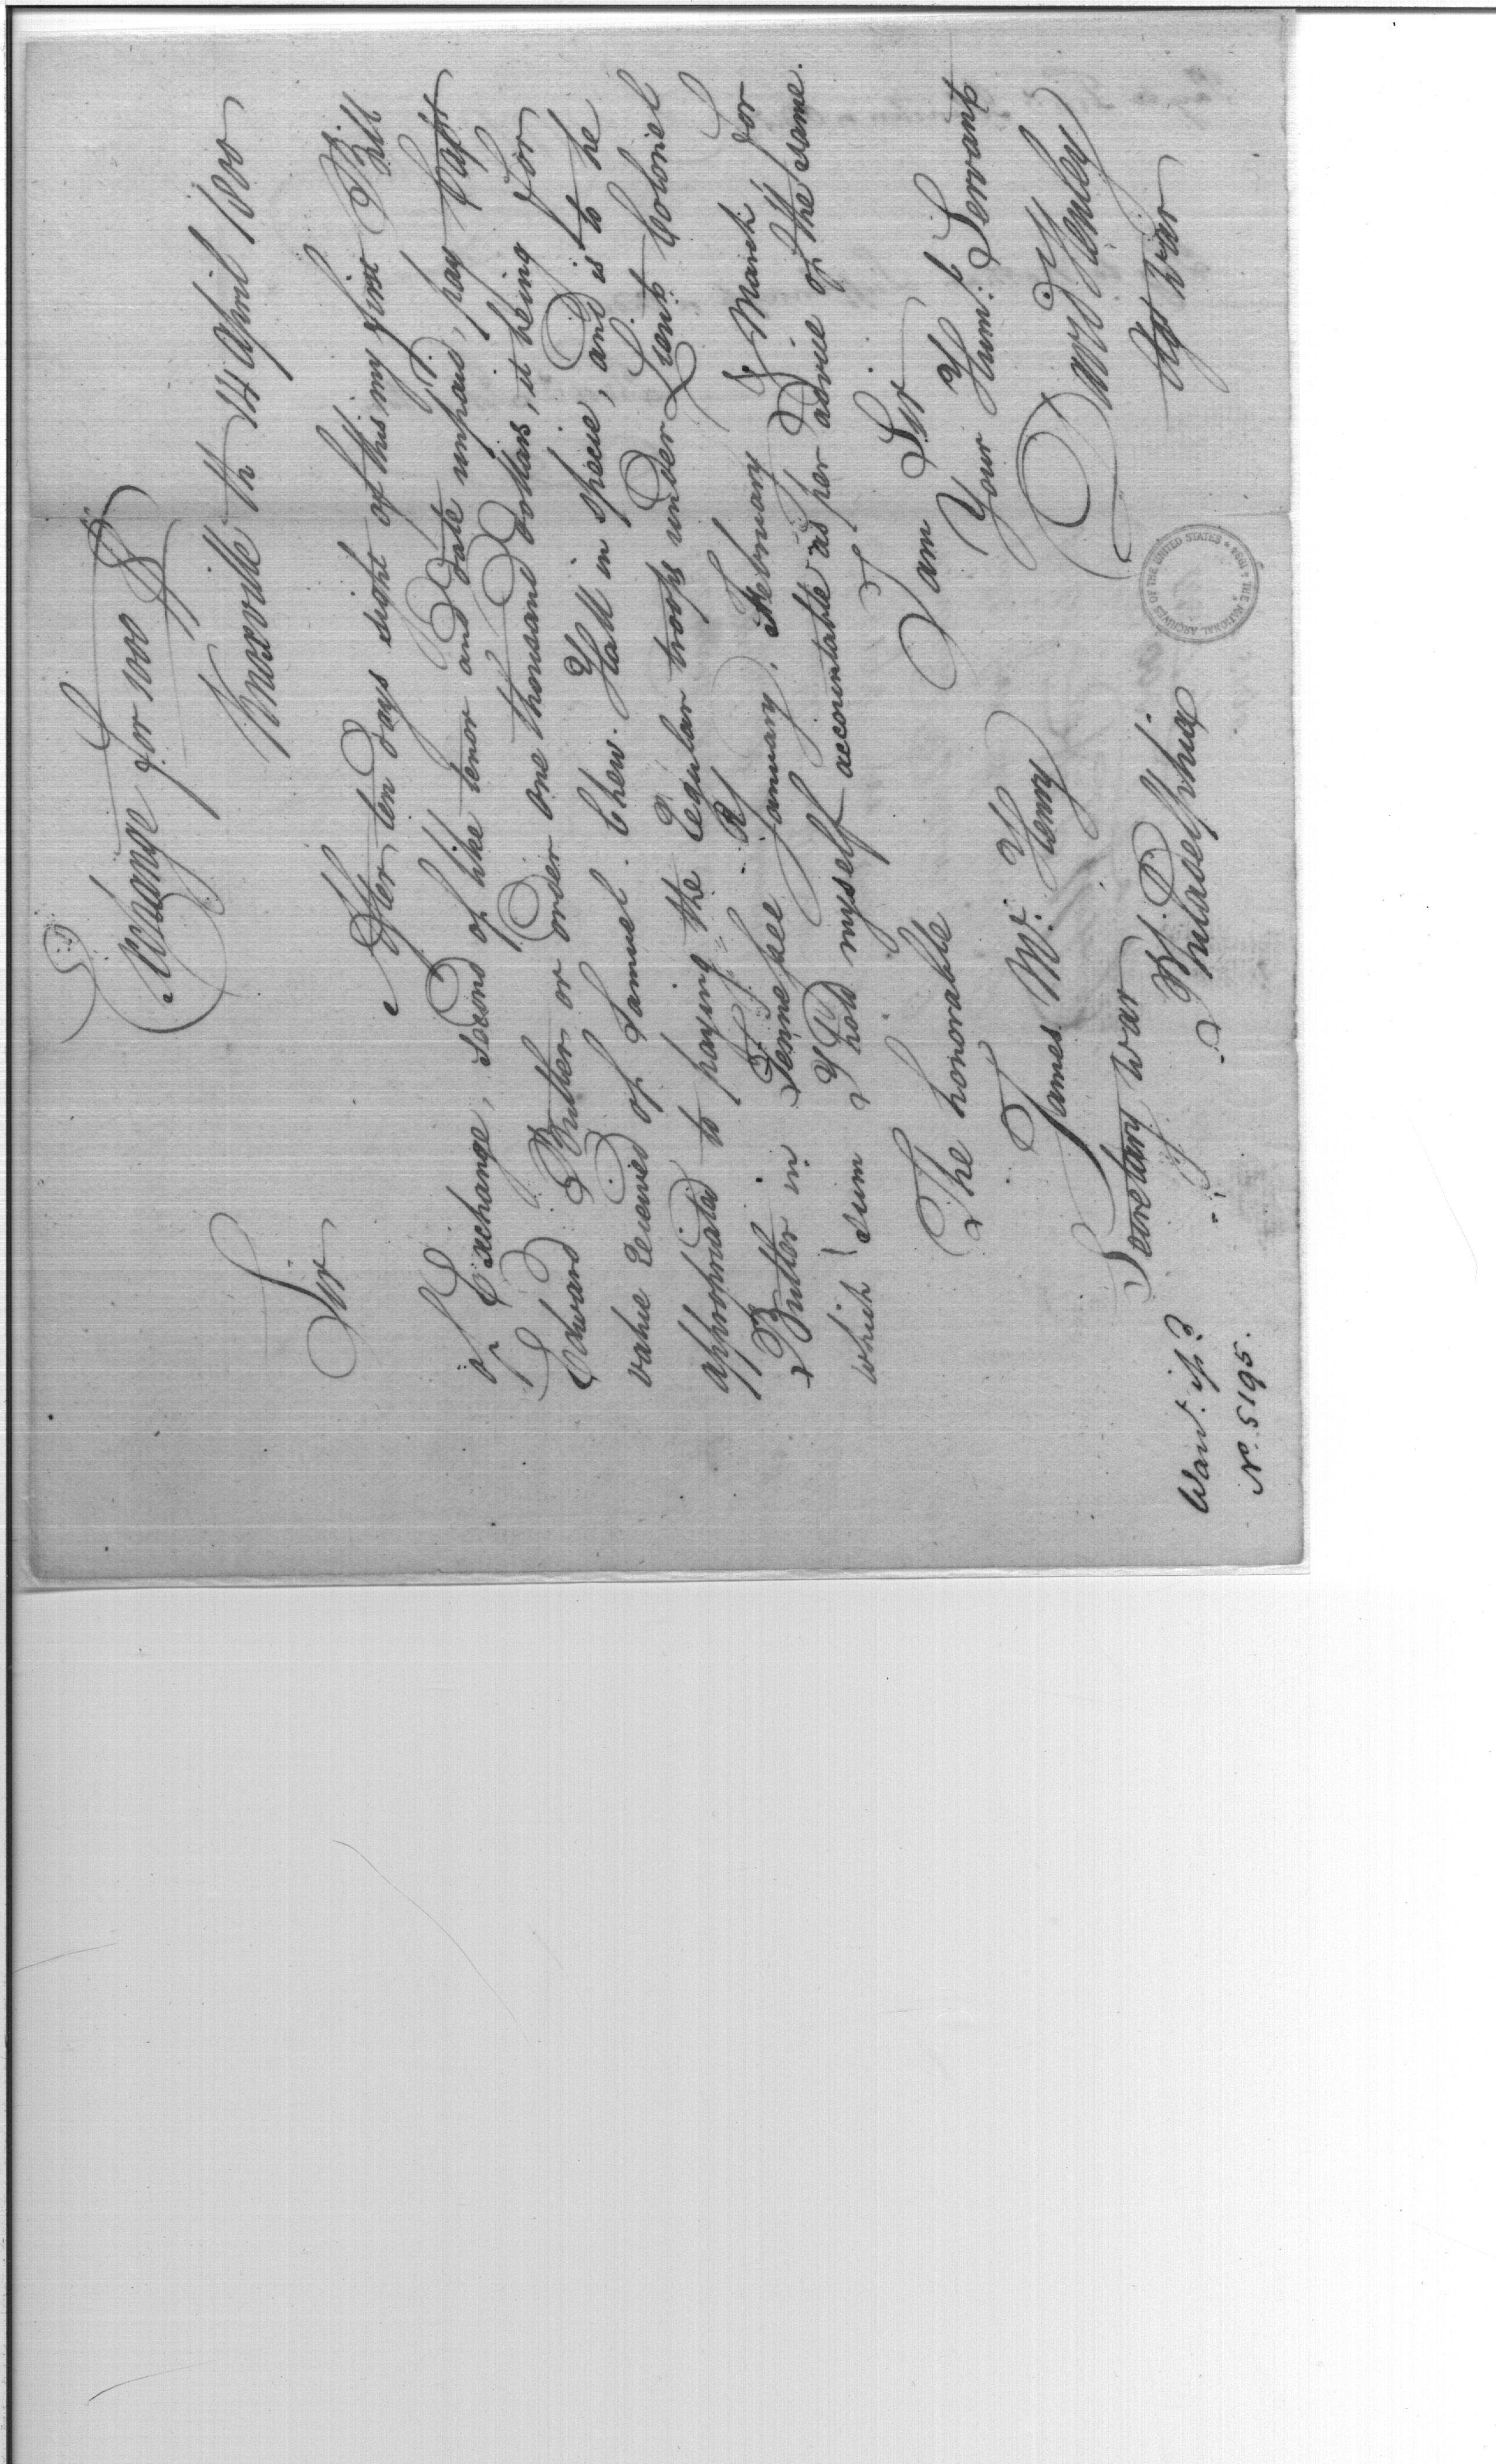 Exchange for 1000 Ds
Knoxville the 14 April 1800
Sir
After ten days sight of this my first Bill
of Exchange, second of like tenor and date unpaid, pay Capt
Edward Butler or order one thousand dollars, it being for
value received of Samuel Chew Hall in specie, and is to be
appropriated to paying the Regular troops under Lieut: Colonel
Butler in Tennessee January, February & March, for
which sum I hold myself accountable as per advice of the same.
I am Sir
Your Hum: Servant
David Henley
Agt War
The honorable
James Mc. Henry
Secretary War
Philadelphia
Warrt. is.d
No. 5195.
THE NATIONAL ARCHIVES OF THE UNITED STATES